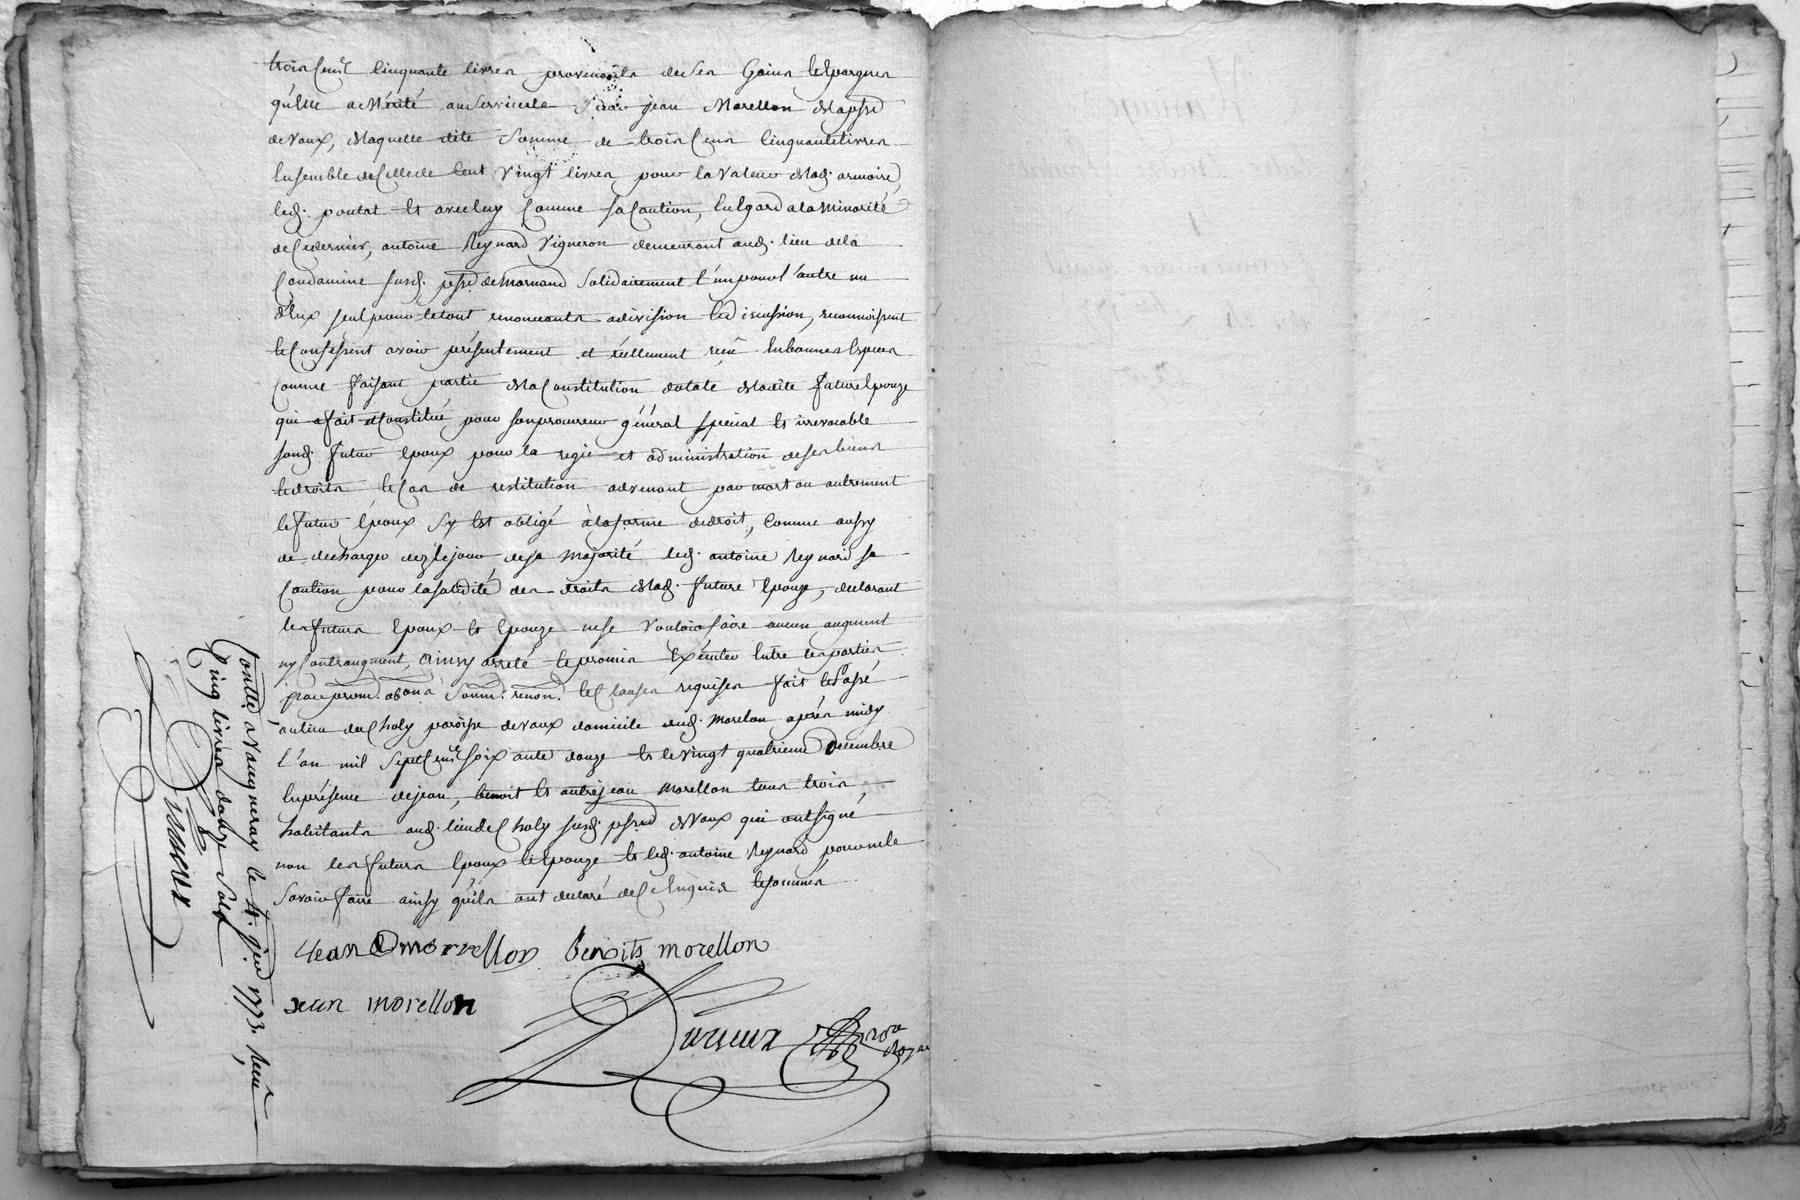 trois Cent Cinquante livres provenants de ses Gains et Epargnes
qu'elle a Mérité au Service de Sieur jean Morellon de la psse
de Vaux, de laquelle dite Somme de trois Cens Cinquante livres
Ensemble de Celle de Cent Vingt livres pour la Valeur de lad. armoire,
led. poutat Et avec luy Comme sa Caution, Eu Egard a la Minorité
de Ce dernier, antoine Reynard Vigneron demeurant aud. lieu de la
Condamine susd. psse de Mornand Solidairement l'un pour l'autre un
d'Eux seul pour le tout renonceants a division Et discussion, reconnoissent
Et Confessent avoir présentement et réellement reçu En bonnes Especes
Comme faisant partie de la Constitution dotale de ladite future Epouze
qui a fait et Constitué pour son procureur général special Et irrevocable
sond. futur Epoux pour la regie et administration de ses biens
Et droits Et Cas de restitution advenant par mort ou autrement
le futur Epoux S'y Est obligé à la forme de droit, Comme aussy
de decharger dez le jour de sa Majorité led. antoine Reynard sa
Caution pour la solidité des droits de lad. future Epouze, declarant
les futurs Epoux Et Epouze ne se Vouloir faire aucun augment
ny Contraugment, Ainsy arreté Et promis Exécuter Entre les parties
par prom. obon. Soum. renon. Et Clauses requises fait Et Passé
au lieu du Choly paroisse de Vaux domicile dud. Morellon après midy
l'an mil Sept Cent soixante douze Et le Vingt quatrieme Decembre
En présence de jean, benoit Et autre jean Morellon tous trois
habitants aud. lieu de Choly susd. psse de Vaux qui ont signé
non les futurs Epoux Et Epouze Et led. antoine Reynard pour ne le
Savoir faire ainsy qu'ils ont declaré de Ce Enquis Et sommés
Jean morrellon benoits morellon
Jean morellon
Durieux nore royal
Contlé a Vaugneray le 4. jer 1773. Recu
Cinq livres douze Sols